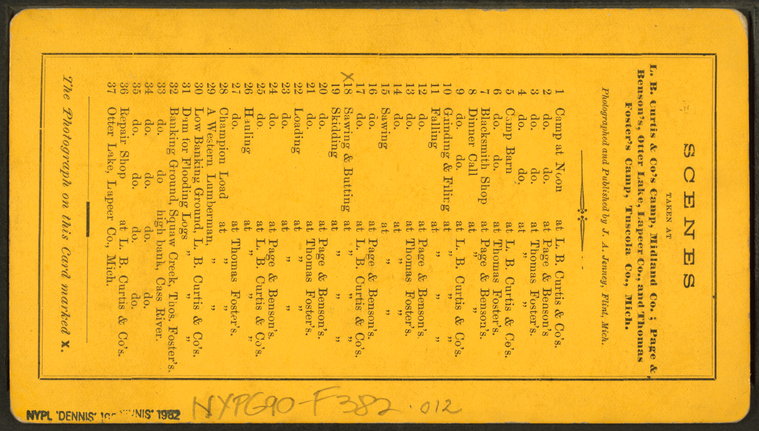 SCENES
TAKEN AT
L. B. Curtis & Co's Camp, Midland Co.; Page &
Benson's, Otter Lake, Lapeer Co., and Thomas
Foster's Camp, Tuscola Co., Mich.
Photographed and Published by J. A. Jenney, Flint, Mich.
1 Camp at Noon at L. B. Curtis & Co's.
2 do. do. at Page & Benson's
3 do. do. at Thomas Foster's.
4 do. do. at „ „
5 Camp Barn at L. B. Curtis & Co's.
6 do. do. at Thomas Foster's.
7 Blacksmith Shop at Page & Benson's.
8 Dinner Call „ „
9 do. do. at L. B. Curtis & Co's.
10 Grinding & Filing at „ „
11 Falling at „ „
12 do. at Page & Benson's.
13 do. at Thomas Foster's
14 do. at „ „
15 Sawing at „ „
16 do. at Page & Benson's.
17 do. at L. B. Curtis & Co's.
X 18 Sawing & Butting at „ „
19 Skidding at „ „
20 do. at Page & Benson's
21 do. at Thomas Foster's.
22 Loading at „ „
23 do. at „ „
24 do. at Page & Benson's.
25 do. at L. B. Curtis & Co's.
26 Hauling at „ „
27 do. at Thomas Foster's.
28 Champion Load at „ „
29 A Western Lumberman, „ „
30 Low Banking Ground, L. B. Curtis & Co's.
31 Dam for Flooding Logs „ „ „
32 Banking Ground, Squaw Creek, Thos. Foster's.
33 do. do high bank, Cass River.
34 do. do. do. do.
35 do. do. do. do.
36 Repair Shop at L. B. Curtis & Co's.
37 Otter Lake, Lapeer Co., Mich.
The Photograph on this Card marked X.
NYPL 'DENNIS' 1982
NYPG90-F382.012